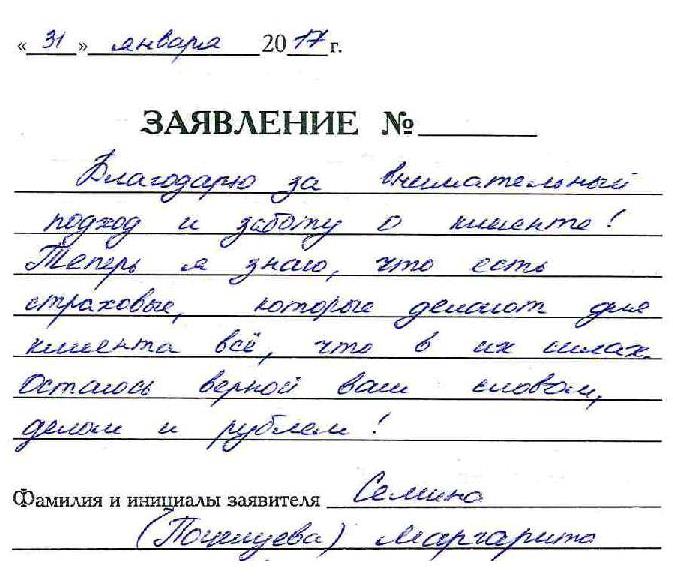 « 31 » января 2017 г.
ЗАЯВЛЕНИЕ №
Благодарю за внимательный
подход и заботу о клиенте!
Теперь я знаю, что есть
страховые, которые делают для
клиента всё, что в их силах.
Остаюсь верной вам словом,
делом и рублем!
Фамилия и инициалы заявителя Семина
(Поцелуева) Маргарита